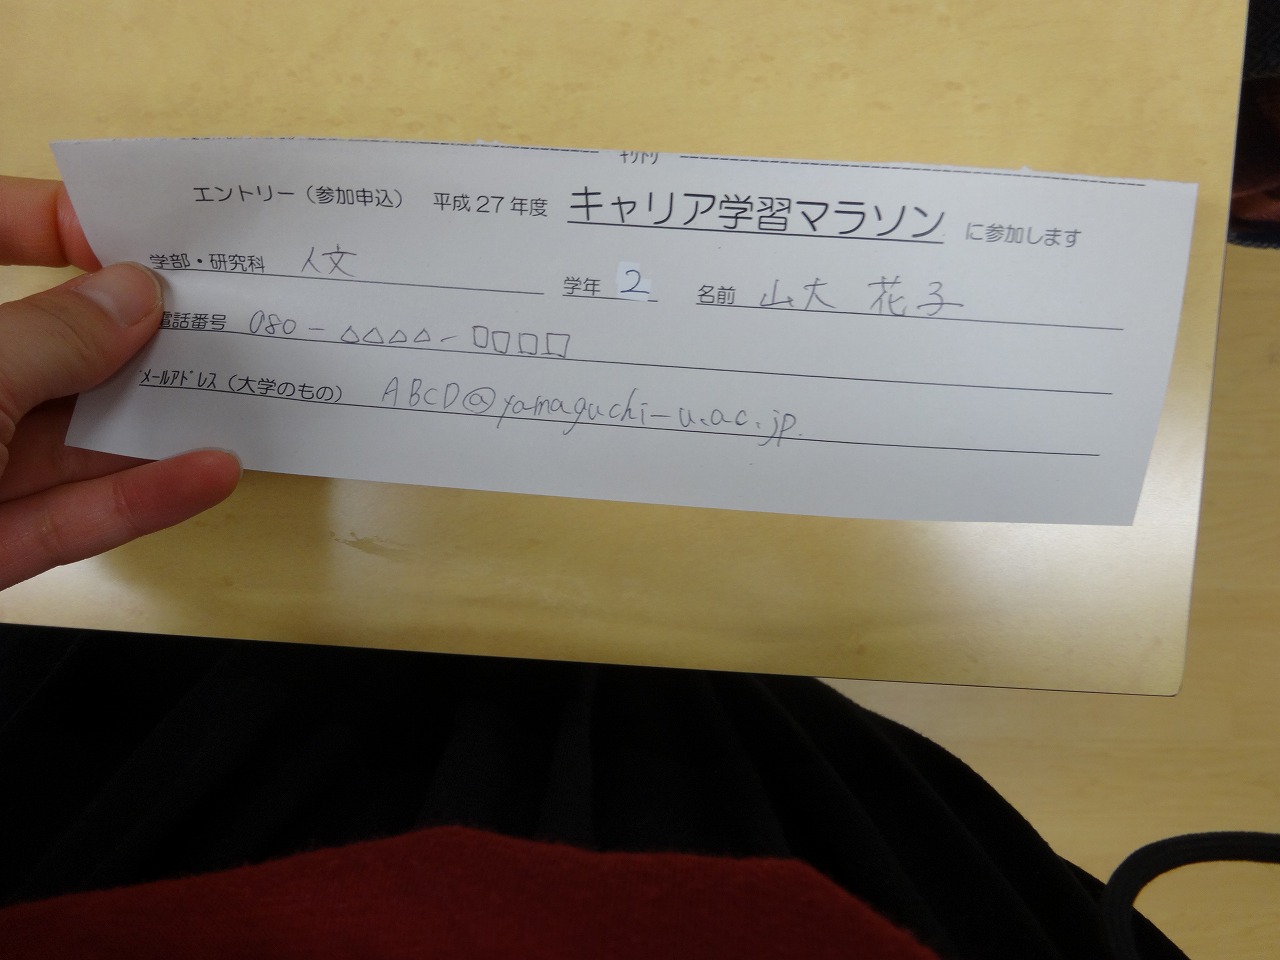 キリトリ
エントリー（参加申込） 平成27年度 キャリア学習マラソン に参加します
学部・研究科 人文 学年 2 名前 山大 花子
電話番号 080-△△△△-□□□□
ﾒｰﾙｱﾄﾞﾚｽ（大学のもの） ABCD@yamaguchi-u.ac.jp.